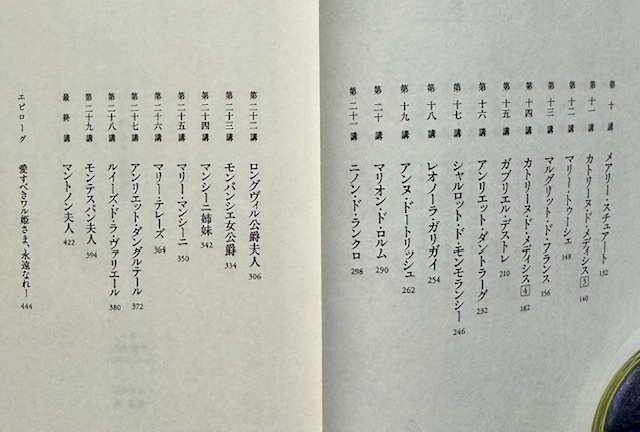 第十講 メアリー・スチュアート 132
第十一講 カトリーヌ・ド・メディシス 3 140
第十二講 マリー・トゥーシェ 148
第十三講 マルグリット・ド・フランス 156
第十四講 カトリーヌ・ド・メディシス 4 182
第十五講 ガブリエル・デストレ 210
第十六講 アンリエット・ダントラーグ 232
第十七講 シャルロット・ド・モンモランシー 246
第十八講 レオノーラ・ガリガイ 254
第十九講 アンヌ・ドートリッシュ 262
第二十講 マリオン・ド・ロルム 290
第二十一講 ニノン・ド・ランクロ 298
第二十二講 ロングヴィル公爵夫人 306
第二十三講 モンパンシエ女公爵 334
第二十四講 マンシーニ姉妹 342
第二十五講 マリー・マンシーニ 350
第二十六講 マリー・テレーズ 364
第二十七講 アンリエット・ダングルテール 372
第二十八講 ルイーズ・ド・ラ・ヴァリエール 380
第二十九講 モンテスパン夫人 394
最終講 マントノン夫人 422
エピローグ 愛すべきワル姫さま、永遠なれ― 444